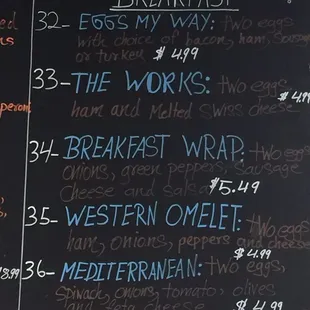 BREAKFAST
32- EGGS MY WAY: two eggs
with choice of bacon, ham, Sausage
or turkey $4.99
33- THE WORKS: two eggs,
ham and Melted Swiss cheese
$4.99
34- BREAKFAST WRAP: two eggs
onions, green peppers, Sausage
cheese and salsa $5.49
35- WESTERN OMELET: two eggs
ham, onions, peppers and cheese
$4.99
36- MEDITERRANEAN: two eggs,
Spinach, onions, tomato, olives
and feta cheese $4.99